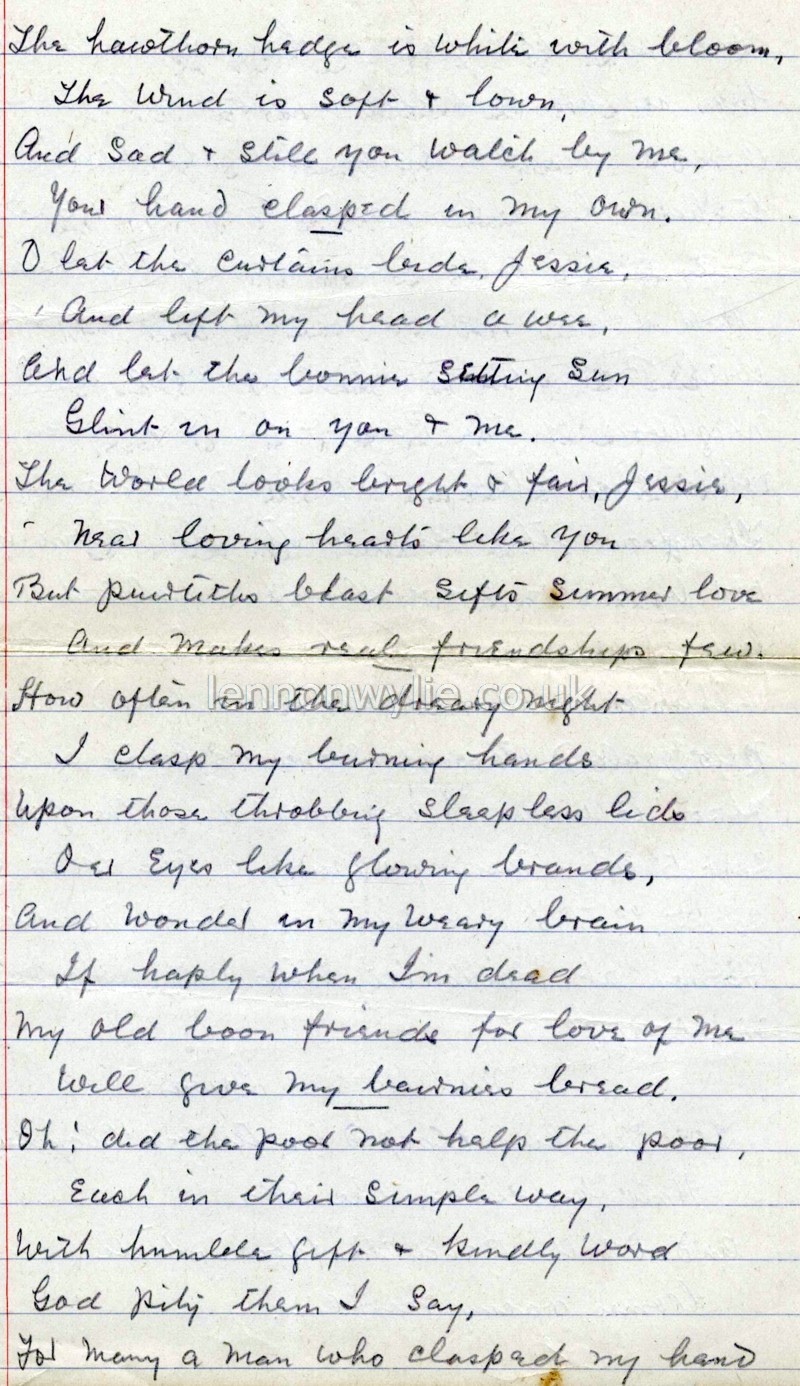 The hawthorn hedge is white with bloom,
The Wind is soft & lown,
And Sad & still you watch by me,
Your hand clasped in my own.
O let the curtains bide, Jessie,
And lift my head a wee,
And let the bonnie Setting Sun
Glint in on you & me.
The World looks bright & fair, Jessie,
Near loving hearts like you
But puirtiths blast sifts Summer love
And makes real friendships few.
lennonwylie.co.uk
How often in the dreary night
I clasp my burning hands
Upon those throbbing sleepless lids
Oer Eyes like glowing brands,
And wonder in my weary brain
If haply when I'm dead
My old boon friends for love of me
Will give my bairnies bread.
Oh! did the poor not help the poor,
Each in their simple way,
With humble gift & kindly word
God pity them I say,
For many a man who clasped my hand